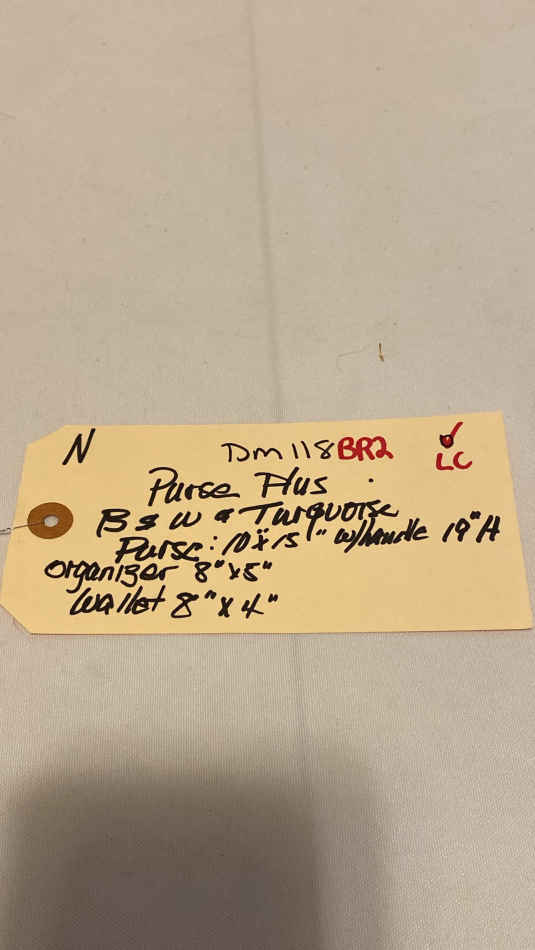 N DM 118 BR2
LC
Purse Plus
B & W & Turquoise
Purse: 10" x 15" w/handle 19" H
organizer 8" x 5"
Wallet 8" x 4"